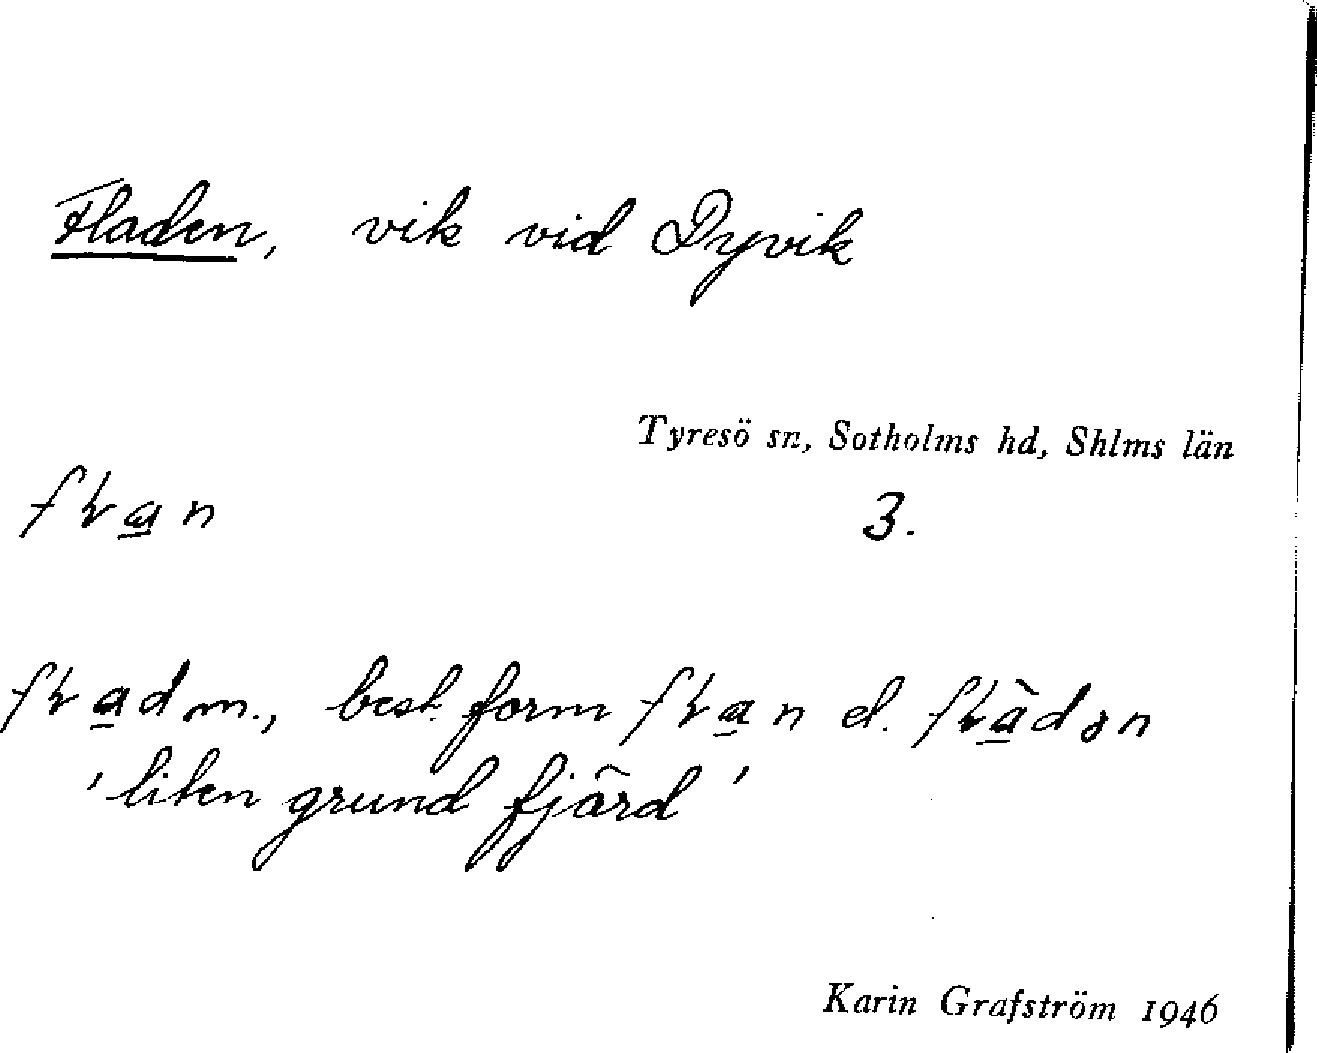 Fladen, vik vid Dyvik
Tyresö sn, Sotholms hd, Shlms län
fɫa̲n
3.
fɫa̲d m., best. form fɫa̲n el. fɫà̲dən
'liten grund fjärd'
Karin Grafström 1946